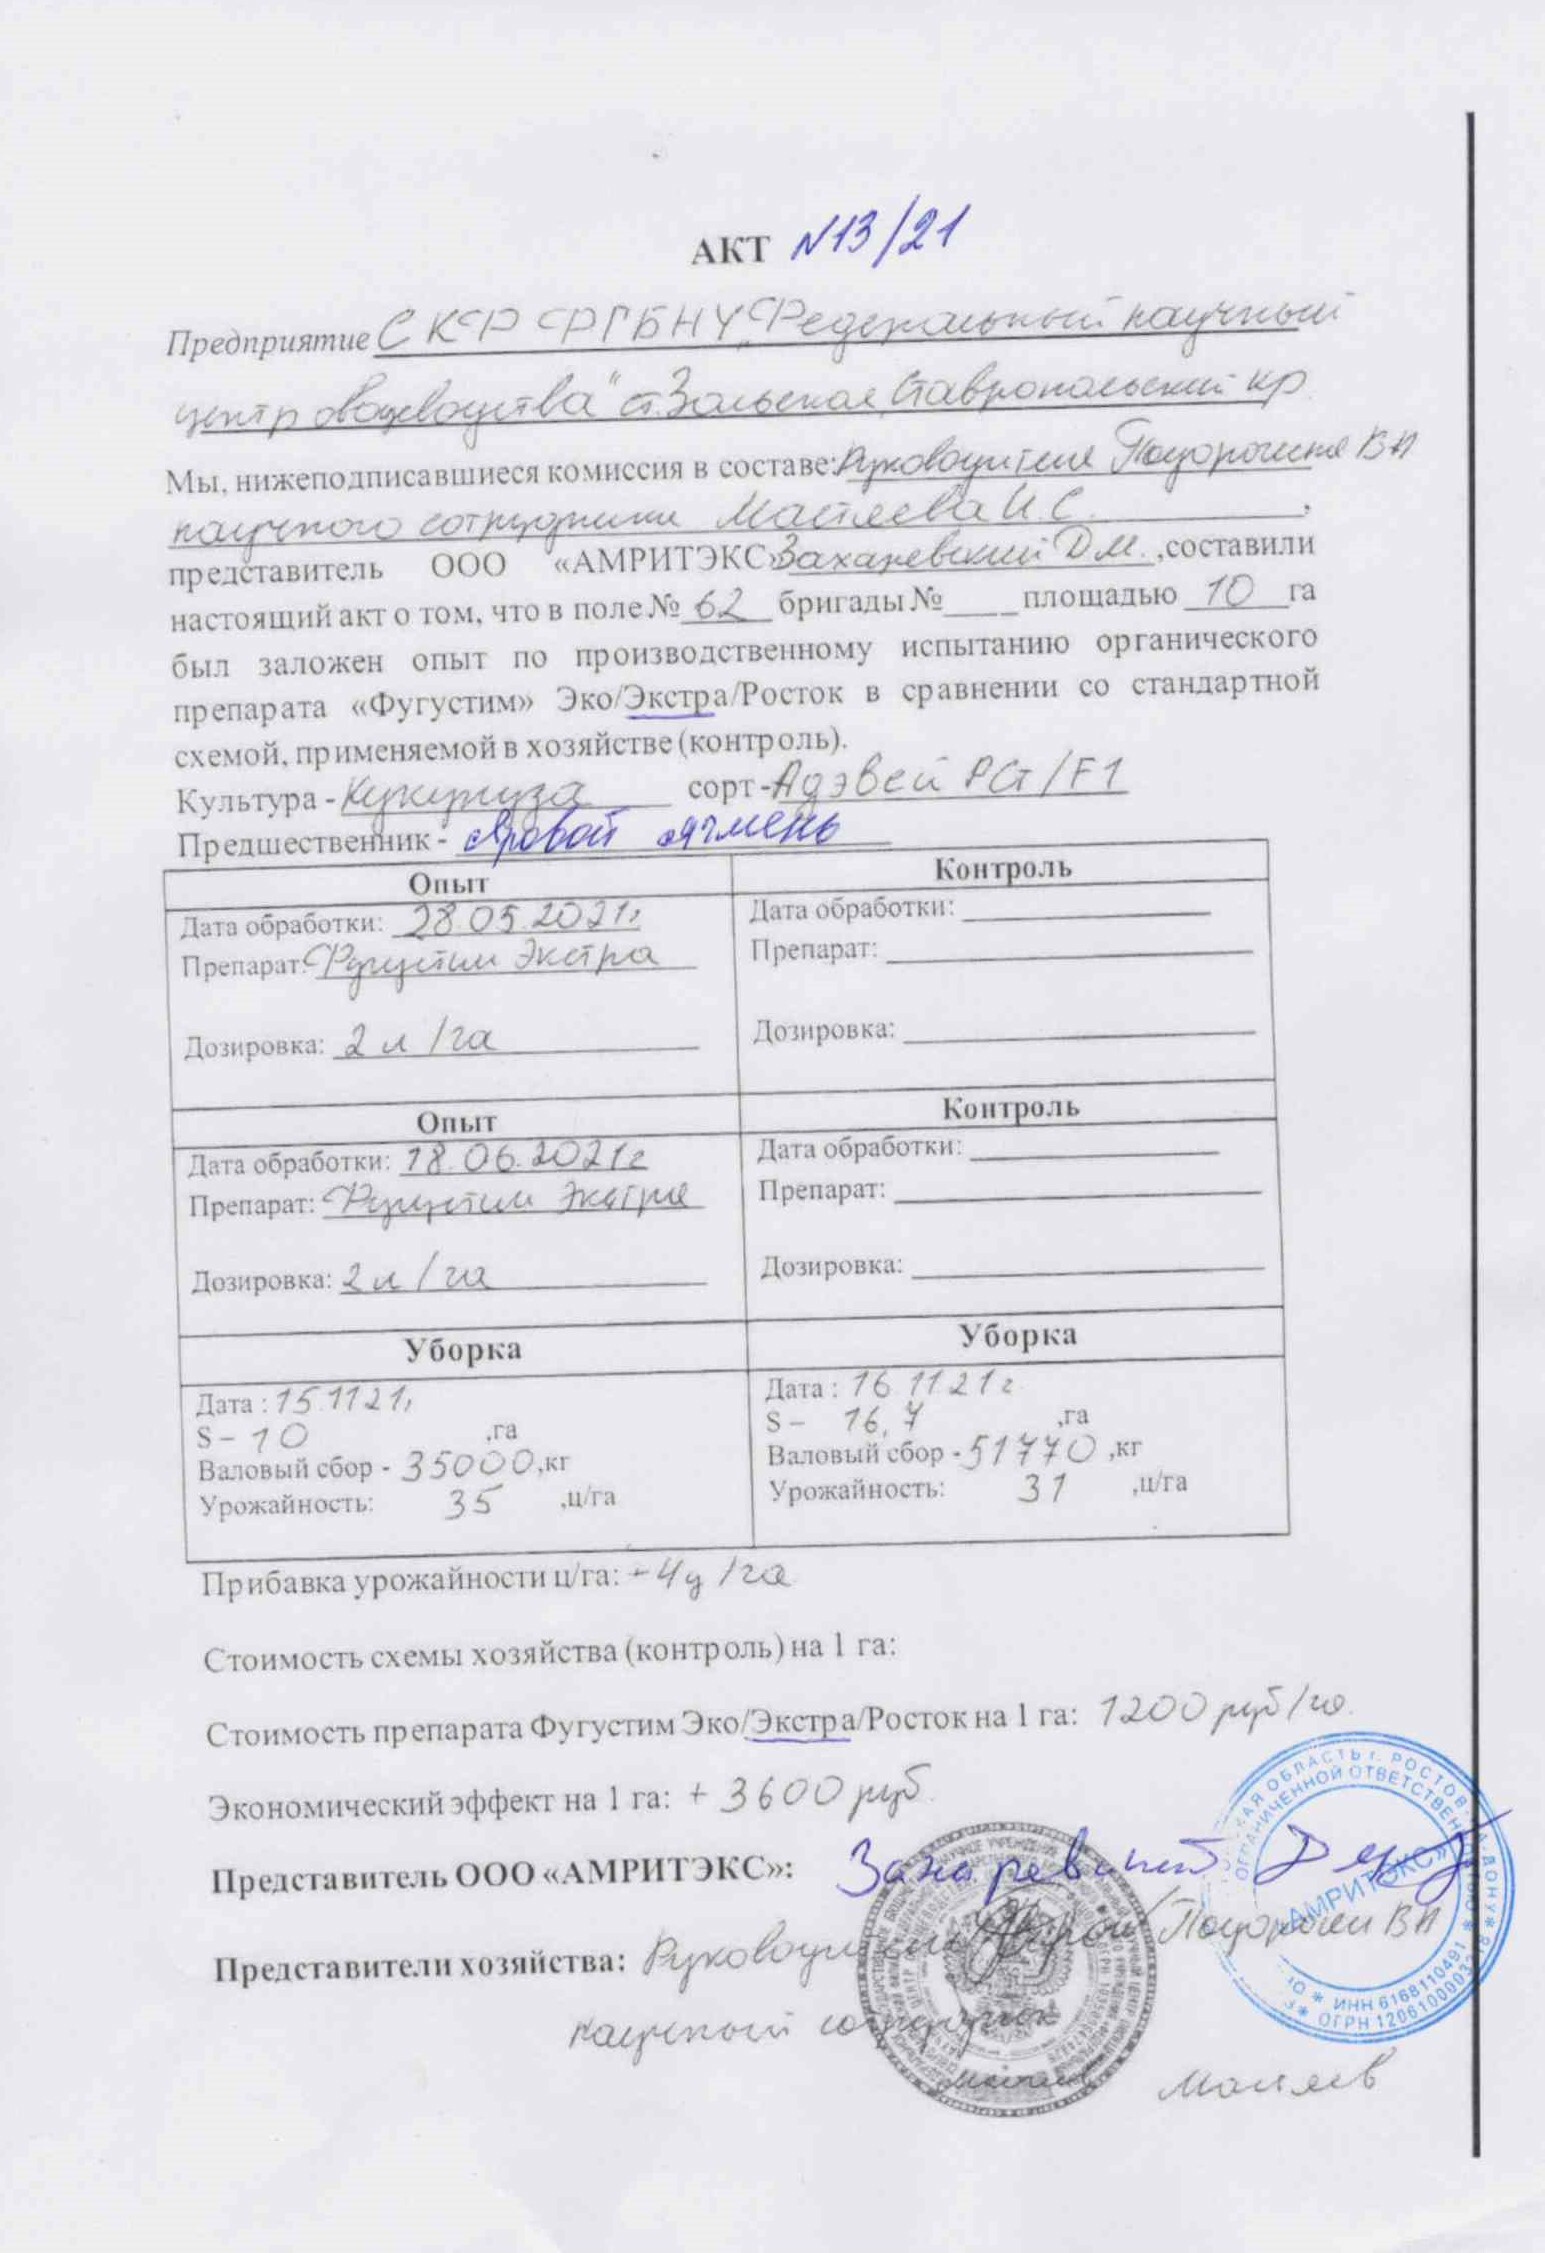 АКТ N13/21
Предприятие СКФ ФГБНУ „Федеральный научный
центр овощеводства" ст. Зольская, Ставропольский кр.
Мы, нижеподписавшиеся комиссия в составе: Руководителя ВН
научного сотрудника И.С.,
представитель ООО «АМРИТЭКС» Захаревский Д.М. ,составили
настоящий акт о том, что в поле № 62 бригады №____ площадью 10 га
был заложен опыт по производственному испытанию органического
препарата «Фугустим» Эко/Экстра/Росток в сравнении со стандартной
схемой, применяемой в хозяйстве (контроль).
Культура - Кукуруза сорт - Адэвей РСт/F1
Предшественник - яровой ячмень
Опыт Контроль
Дата обработки: 28.05.2021г Дата обработки:
Препарат: Фугустим Экстра Препарат:
Дозировка: 2 л/га Дозировка:
Опыт Контроль
Дата обработки: 18.06.2021г Дата обработки:
Препарат: Фугустим Экстра Препарат:
Дозировка: 2 л/га Дозировка:
Уборка Уборка
Дата : 15.11 21г Дата : 16 11 21 г
S – 10 ,га S – 16,7 ,га
Валовый сбор - 35000,кг Валовый сбор - 51770 ,кг
Урожайность: 35 ,ц/га Урожайность: 31 ,ц/га
Прибавка урожайности ц/га: + 4ц/га
Стоимость схемы хозяйства (контроль) на 1 га:
Стоимость препарата Фугустим Эко/Экстра/Росток на 1 га: 1200 руб/га.
Экономический эффект на 1 га: + 3600 руб.
Представитель ООО «АМРИТЭКС»: Захаревский
Представители хозяйства: Руководитель ВН
научный сотрудник
«АМРИТЭКС»
ИНН 6168110491